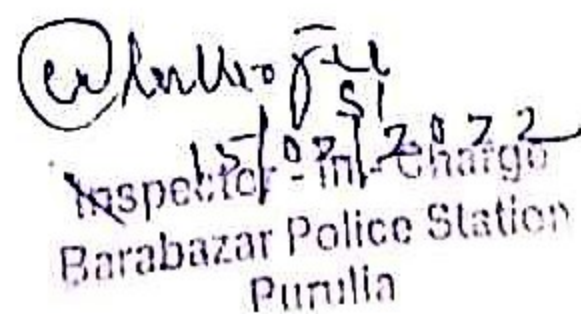 SI
15/07/2022
Inspector-in-Charge
Barabazar Police Station
Purulia